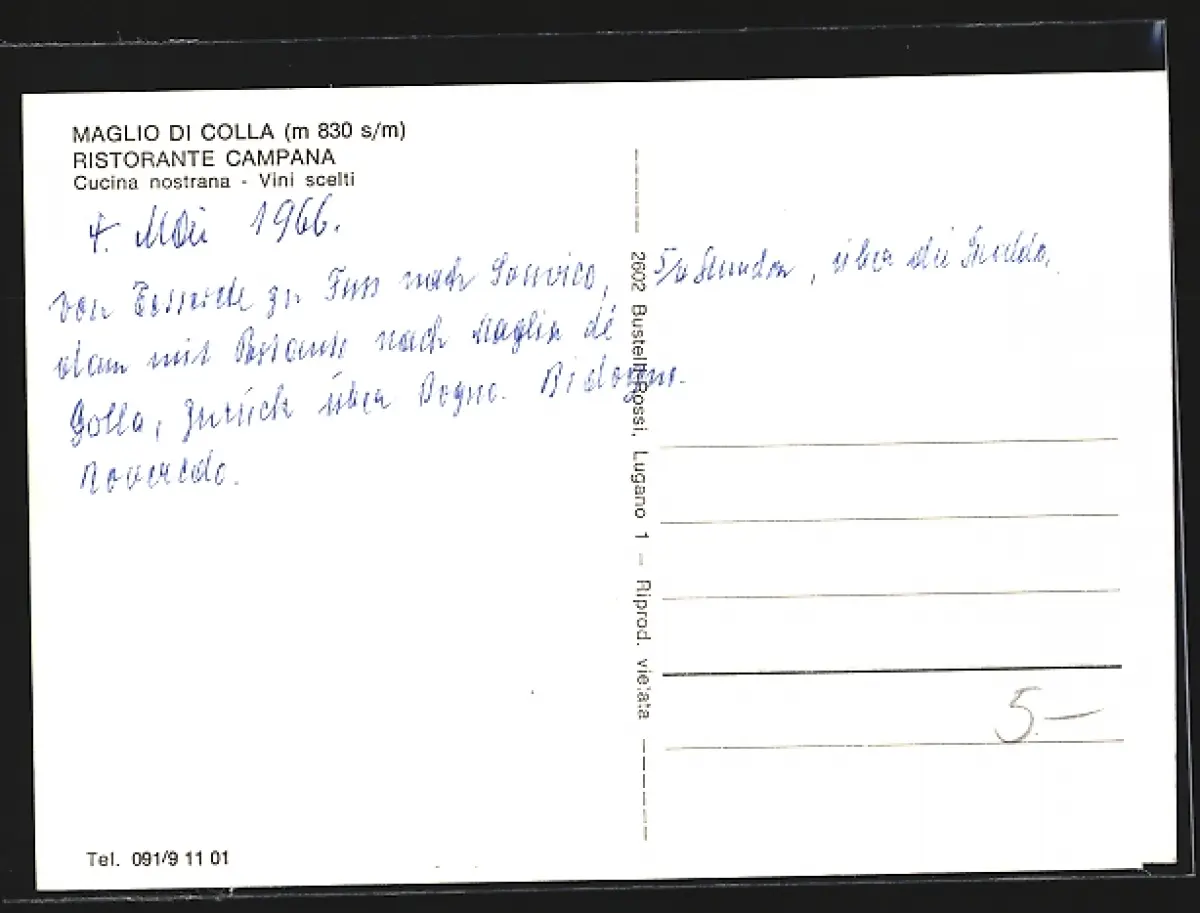 MAGLIO DI COLLA (m 830 s/m)
RISTORANTE CAMPANA
Cucina nostrana - Vini scelti
4. Mai 1966.
von Tesserete zu Fuss nach Sonvico, 5/4 Stunden, über die
dann mit Postauto nach Maglio di
Colla, zurück über Bogno. Bidogno.
Roveredo.
2602 Bustelli-Rossi, Lugano 1 — Riprod. vietata
5.—
Tel. 091/9 11 01